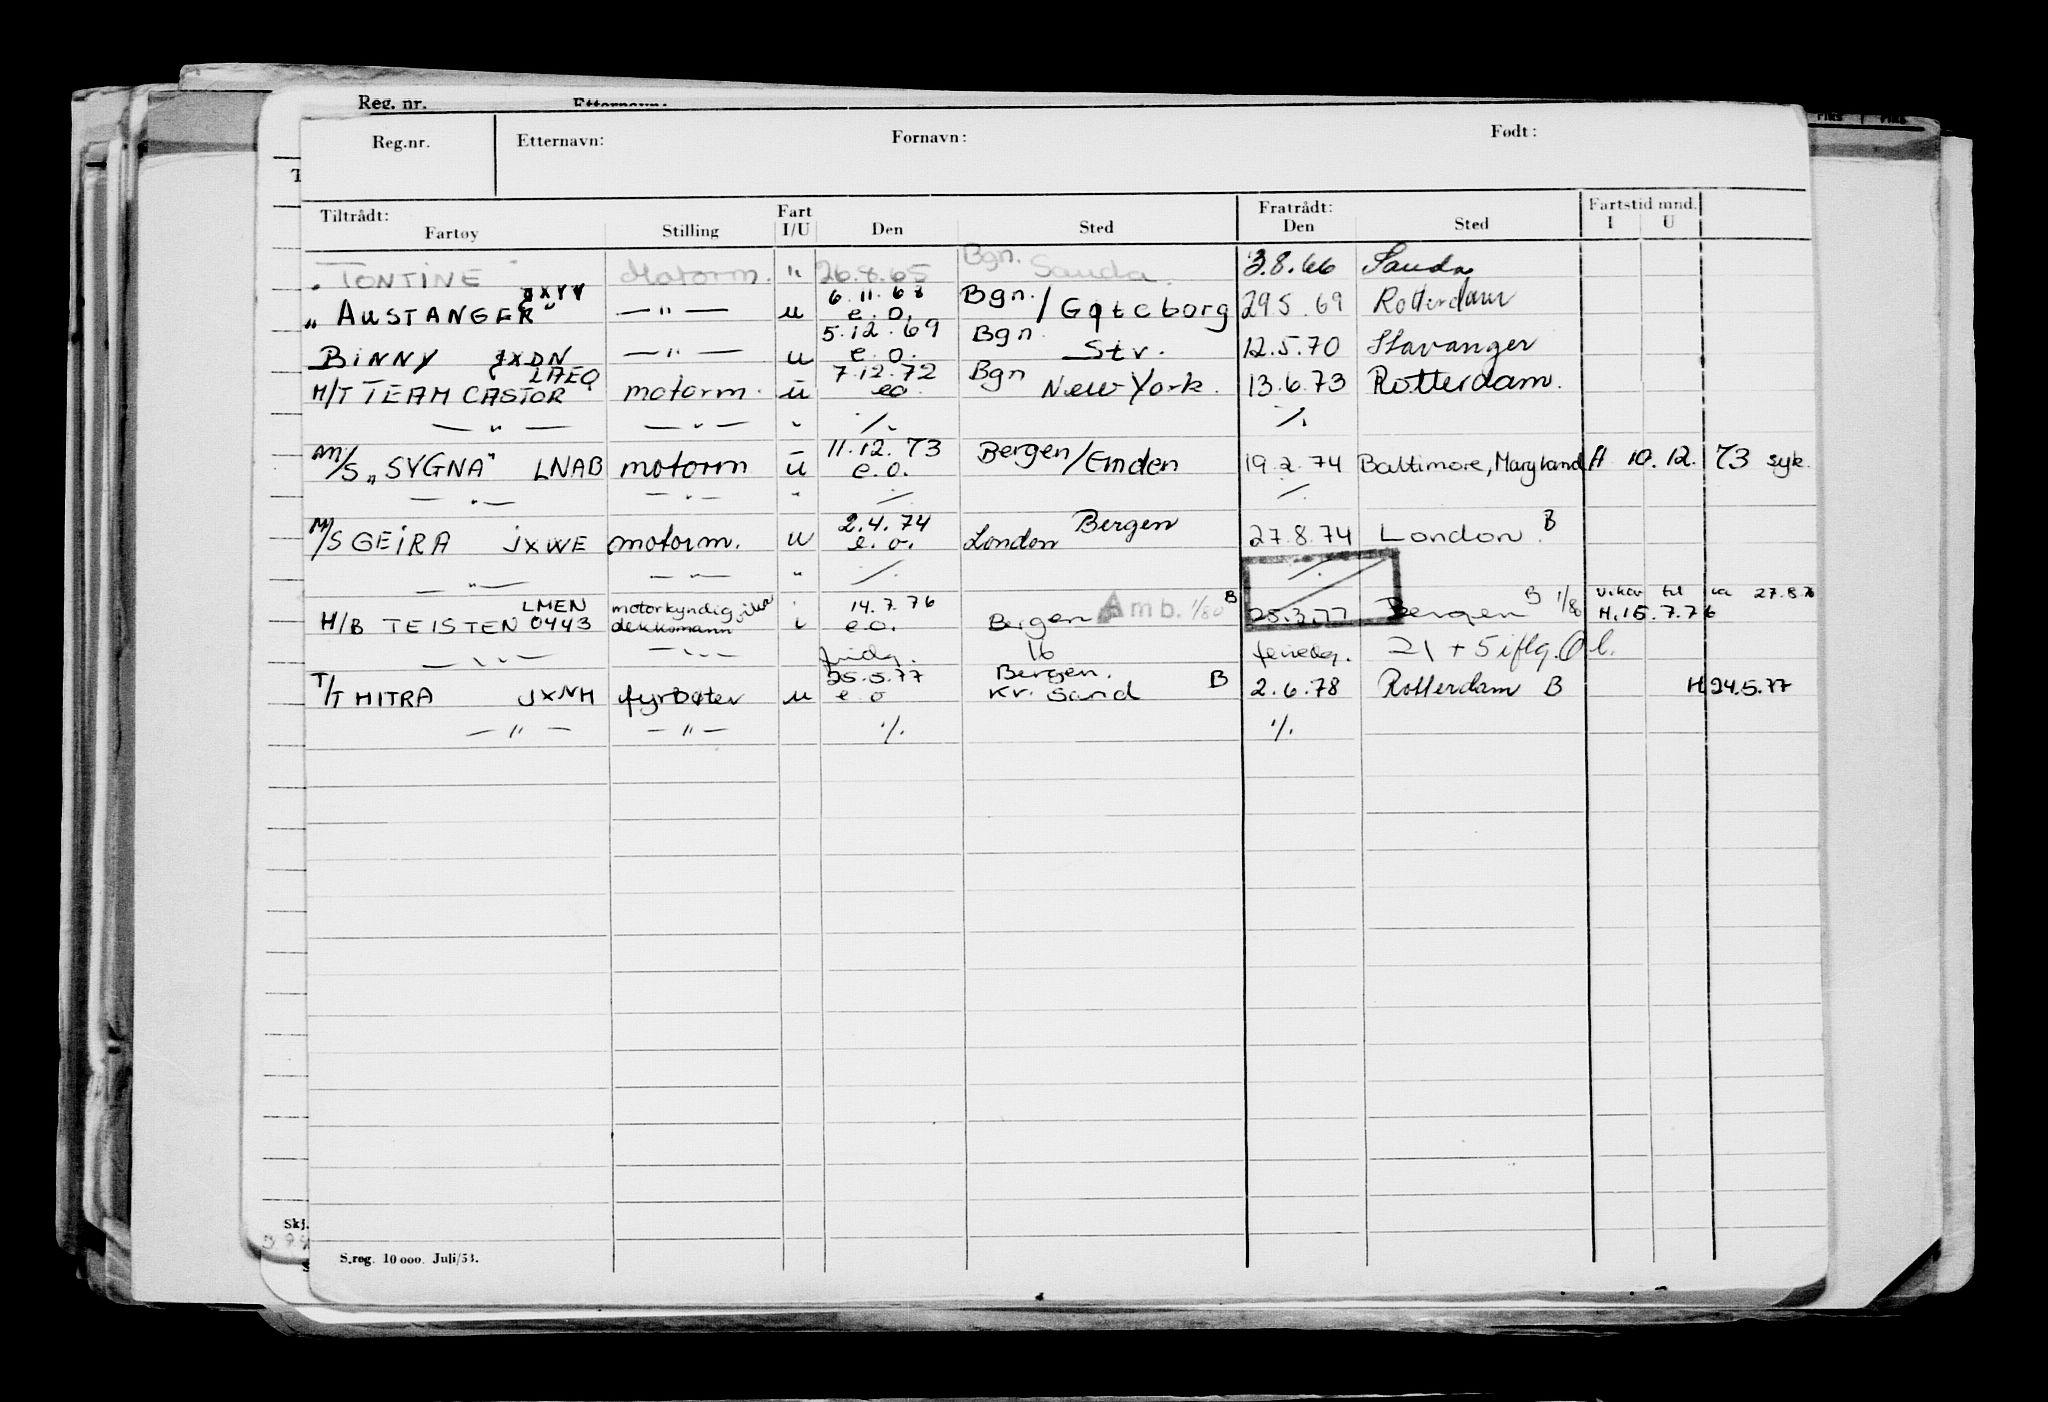 Reg. nr. Etternavn:
Reg.nr. Etternavn: Fornavn: Født:
Tiltrådt: Fart Fratrådt: Fartstid mnd.
Fartøy Stilling I/U Den Sted Den Sted I U
"TONTINE" Motorm. " 26.8.65 Bgn. Sauda 3.8.66 Sauda
JXYY 6.11.68 Bgn.
"AUSTANGER" —"— u e.o. / Gøteborg 29.5.69 Rotterdam
5.12.69 Bgn.
BINNY JXDN —"— u e.o. Str. 12.5.70 Stavanger
LAEQ 7.12.72 Bgn
M/T TEAM CASTOR motorm. u eo. New York. 13.6.73 Rotterdam.
—"— —"— " ./. ./.
11.12.73
M/S „SYGNA" LNAB motorm u e.o. Bergen/Emden 19.2.74 Baltimore, Maryland H 10.12.73 syk.
—"— —"— " ./. ./.
2.4.74 Bergen
M/S GEIRA JXWE motorm. u e.o. London 27.8.74 London. B
—"— —"— " ./. ./.
LMEN motorkyndig 14.7.76 B B 1/8 vikar til ca 27.8.76
M/B TEISTEN 0443 dekksmann i e.o. Bergen Amb. 1/80 25.3.77 Bergen H.15.7.76
—"— —"— fridg. 16 feriedg. 21 + 5 iflg. O l.
25.5.77 Bergen.
T/T MITRA JXNH fyrbøter u e.o Kr. Sand B 2.6.78 Rotterdam B H 24.5.77
—"— —"— ./. ./.
Skj.
S.reg. 10 000. Juli/53.